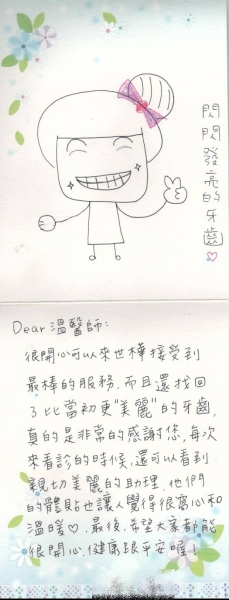 閃閃發亮的牙齒♡
Dear 溫醫師:
很開心可以來世樺接受到
最棒的服務,而且還找回
了比當初更"美麗"的牙齒,
真的是非常的感謝您,每次
來看診的時候,還可以看到
親切美麗的助理,他們
的體貼也讓人覺得很窩心和
溫暖♡,最後,希望大家都能
很開心,健康跟平安喔!